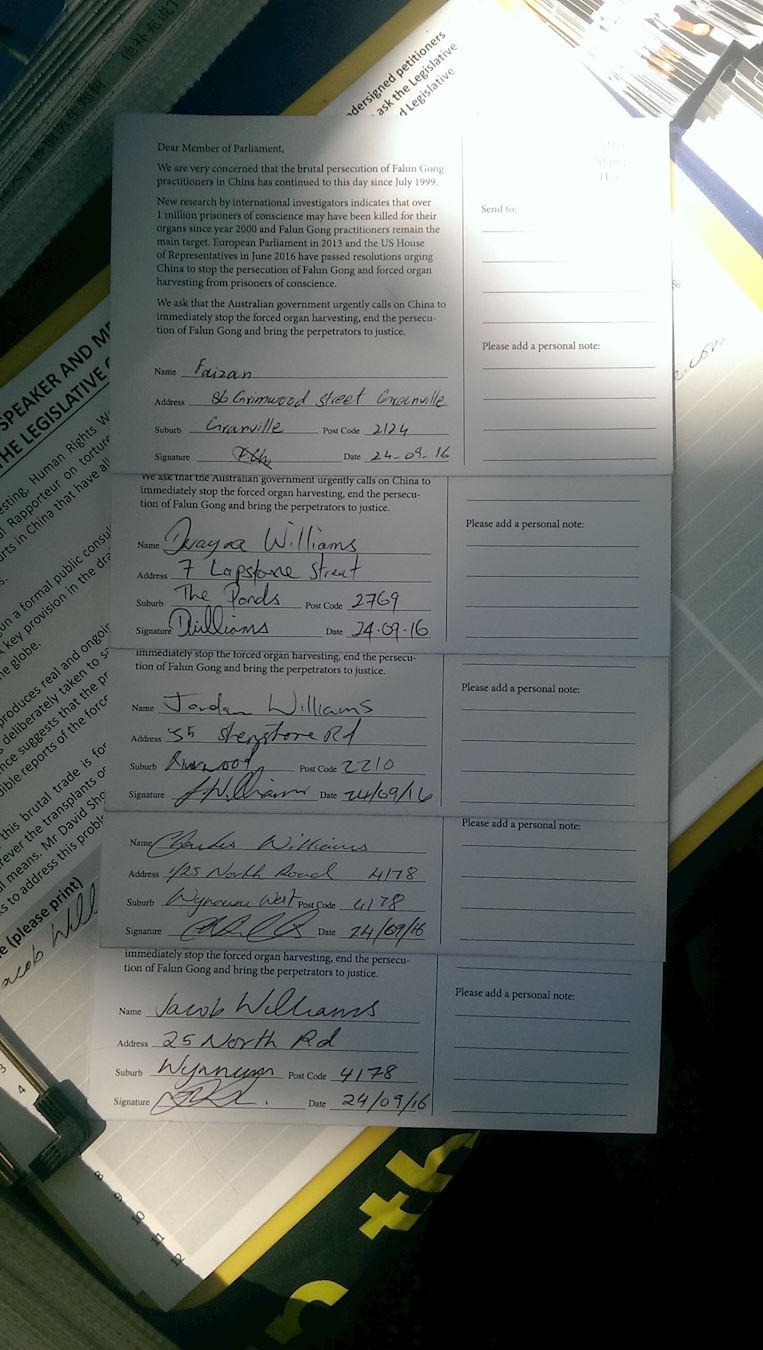 他补充说
ndersigned petitioners
ask the Legislative
d Legislative
Dear Member of Parliament,
We are very concerned that the brutal persecution of Falun Gong
practitioners in China has continued to this day since July 1999.
New research by international investigators indicates that over
1 million prisoners of conscience may have been killed for their
organs since year 2000 and Falun Gong practitioners remain the
main target. European Parliament in 2013 and the US House
of Representatives in June 2016 have passed resolutions urging
China to stop the persecution of Falun Gong and forced organ
harvesting from prisoners of conscience.
We ask that the Australian government urgently calls on China to
immediately stop the forced organ harvesting, end the persecu-
tion of Falun Gong and bring the perpetrators to justice.
Name Faizan
Address 86 Grimwood street Granville
Suburb Granville Post Code 2124
Signature Date 24-09-16
Send to:
Please add a personal note:
We ask that the Australian government urgently calls on China to
immediately stop the forced organ harvesting, end the persecu-
tion of Falun Gong and bring the perpetrators to justice.
Name Williams
Address 7 Lapstone Street
Suburb The Ponds Post Code 2769
Signature DWilliams Date 24.09.16
Please add a personal note:
immediately stop the forced organ harvesting, end the persecu-
tion of Falun Gong and bring the perpetrators to justice.
Name Jordan Williams
Address Rd
Suburb Post Code 2210
Signature JWilliams Date 24/09/16
Please add a personal note:
Name Charles Williams
Address 1/25 North Road 4178
Suburb West Post Code 4178
Signature Date 24/09/16
Please add a personal note:
immediately stop the forced organ harvesting, end the persecu-
tion of Falun Gong and bring the perpetrators to justice.
Name Jacob Williams
Address 25 North Rd
Suburb Wynnum Post Code 4178
Signature Date 24/09/16
Please add a personal note:
SPEAKER AND ME
THE LEGISLATIVE C
esting, Human Rights W
al Rapporteur on torture
orts in China that have al
un a formal public consul
key provision in the dra
he globe.
produces real and ongoin
s deliberately taken to sa
nce suggests that the pr
dible reports of the force
this brutal trade is for
rever the transplants o
al means. Mr David Sho
ks to address this probl
e (please print)
acob Will
e.com
3
4
8
9
10
11
12
th